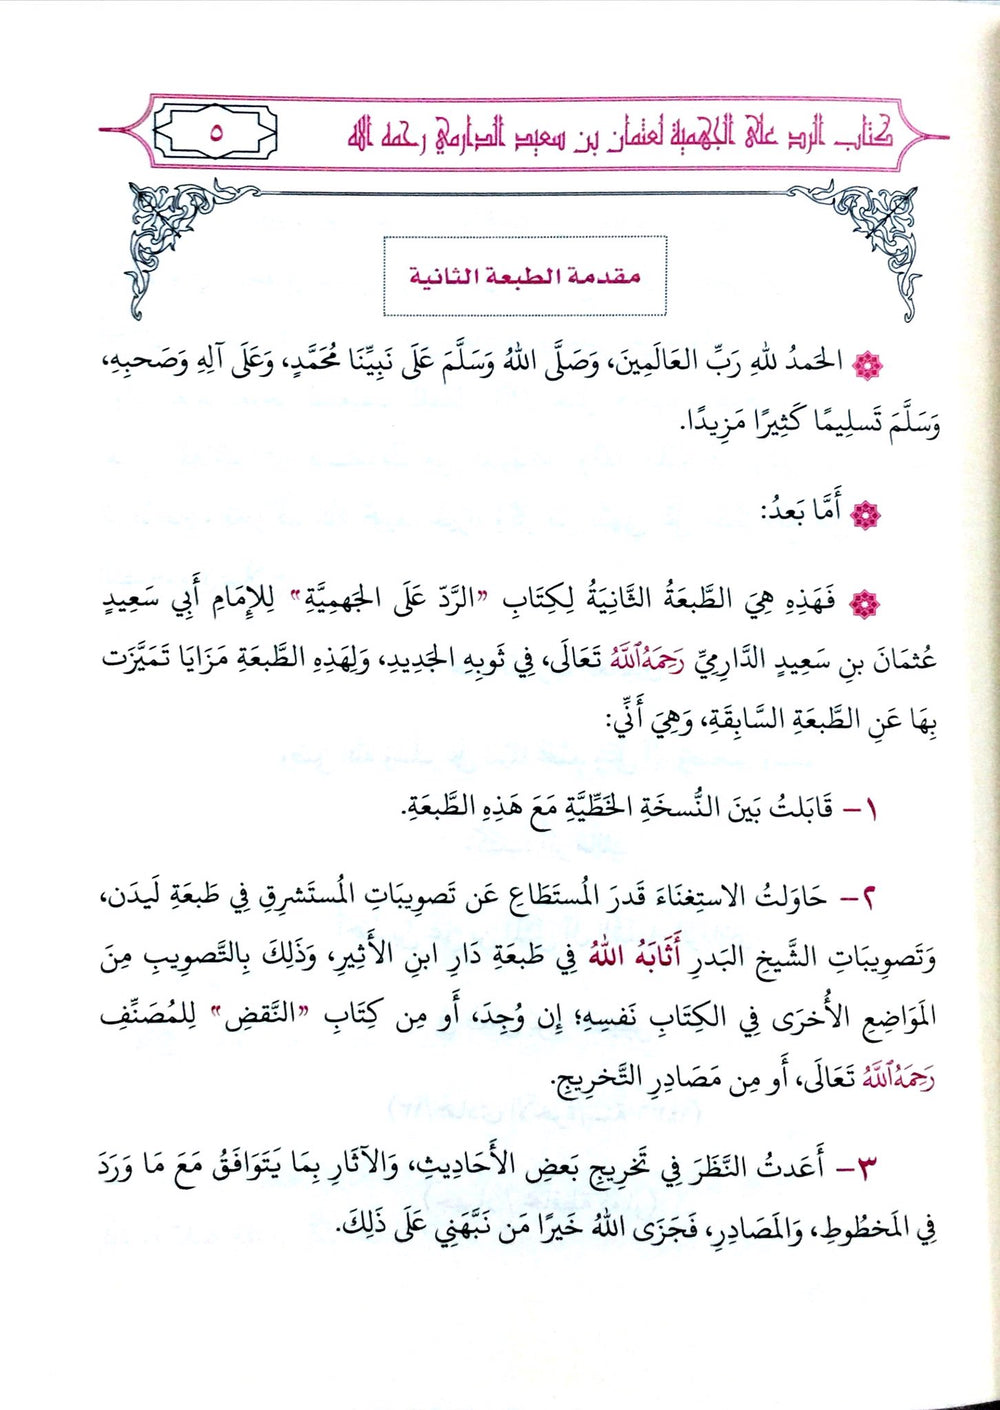 كتاب الرد على الجهمية لعثمان بن سعيد الدارمي رحمه الله
٥
مقدمة الطبعة الثانية
الحَمدُ للهِ رَبِّ العَالَمِينَ، وَصَلَّى اللهُ وَسَلَّمَ عَلَى نَبِيِّنَا مُحَمَّدٍ، وَعَلَى آلِهِ وَصَحبِهِ،
وَسَلَّمَ تَسلِيمًا كَثِيرًا مَزِيدًا.
أَمَّا بَعدُ:
فَهَذِهِ هِيَ الطَّبعَةُ الثَّانِيَةُ لِكِتَابِ «الرَّدّ عَلَى الجَهمِيَّةِ» لِلإِمَامِ أَبِي سَعِيدٍ
عُثمَانَ بنِ سَعِيدٍ الدَّارِمِيِّ رَحِمَهُ اللَّهُ تَعَالَى، فِي ثَوبِهِ الجَدِيدِ، وَلِهَذِهِ الطَّبعَةِ مَزَايَا تَمَيَّزَت
بِهَا عَنِ الطَّبعَةِ السَّابِقَةِ، وَهِيَ أَنِّي:
١- قَابَلتُ بَينَ النُّسخَةِ الخَطِّيَّةِ مَعَ هَذِهِ الطَّبعَةِ.
٢- حَاوَلتُ الاستِغنَاءَ قَدرَ المُستَطَاعِ عَن تَصوِيبَاتِ المُستَشرِقِ فِي طَبعَةِ لَيدَن،
وَتَصوِيبَاتِ الشَّيخِ البَدرِ أَثَابَهُ اللهُ فِي طَبعَةِ دَارِ ابنِ الأَثِيرِ، وَذَلِكَ بِالتَّصوِيبِ مِنَ
المَوَاضِعِ الأُخرَى فِي الكِتَابِ نَفسِهِ؛ إِن وُجِدَ، أَو مِن كِتَابِ «النَّقضِ» لِلمُصَنِّفِ
رَحِمَهُ اللَّهُ تَعَالَى، أَو مِن مَصَادِرِ التَّخرِيجِ.
٣- أَعَدتُ النَّظَرَ فِي تَخرِيجِ بَعضِ الأَحَادِيثِ، وَالآثَارِ بِمَا يَتَوَافَقُ مَعَ مَا وَرَدَ
فِي المَخطُوطِ، وَالمَصَادِرِ، فَجَزَى اللهُ خَيرًا مَن نَبَّهَنِي عَلَى ذَلِكَ.